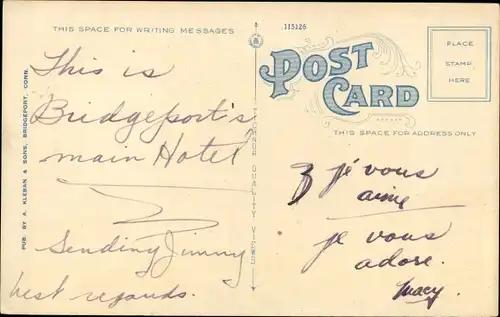 THIS SPACE FOR WRITING MESSAGES
115126
POST CARD
PLACE
STAMP
HERE
THIS SPACE FOR ADDRESS ONLY
PUB. BY A. KLEBAN & SONS, BRIDGEPORT, CONN.
QUALITY VIEWS
This is
Bridgeport's
main Hotel
Sending Jimmy
best regards.
je vous
aime
je vous
adore.
Macy.